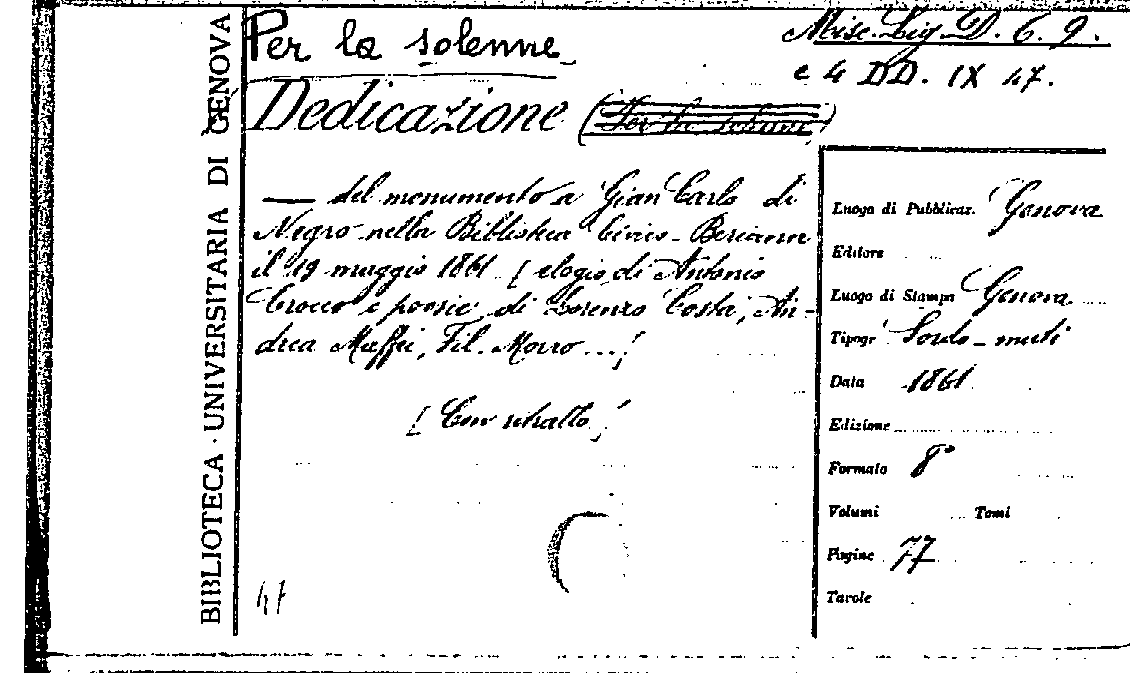 BIBLIOTECA · UNIVERSITARIA DI GENOVA
Per la solenne
Misc. Lig. D. 6. 9.
e 4 DD. IX 47.
Dedicazione (Per la solenne)
— del monumento a Gian Carlo di
Negro nella Biblioteca Civico-Beriana
il 19 maggio 1861 [elogio di Antonio
Crocco e poesie di Lorenzo Costa, An-
drea Maffei, Fil. Morro...]
[Con ritratto]
47
Luogo di Pubblicaz. Genova
Editore
Luogo di Stampa Genova
Tipogr. Sordo-muti
Data 1861
Edizione
Formato 8°
Volumi Tomi
Pagine 77
Tavole